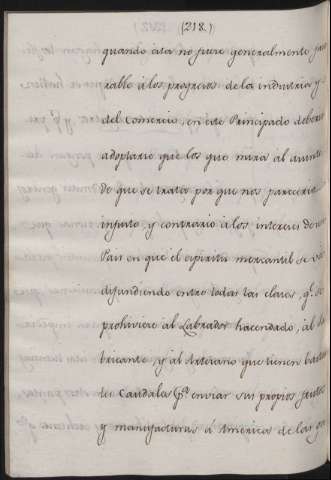 (218.)
quando ésta no fuere generalmente favo
rable á los progresos de la industria y
del Comercio, en este Principado debería
adoptarse que los que mira al asunto
de que se trata por que nos parecería
injusto y contrario á los intereses de un
Pais en que el espiritu mercantil se va
difundiendo entre todas las clases, qe. se
prohiviese al Labrador hacendado, al fa
bricante, y al Artesano que tienen bastan
tes Caudales pa. enviar sus propios frutos
y manufacturas á America de las